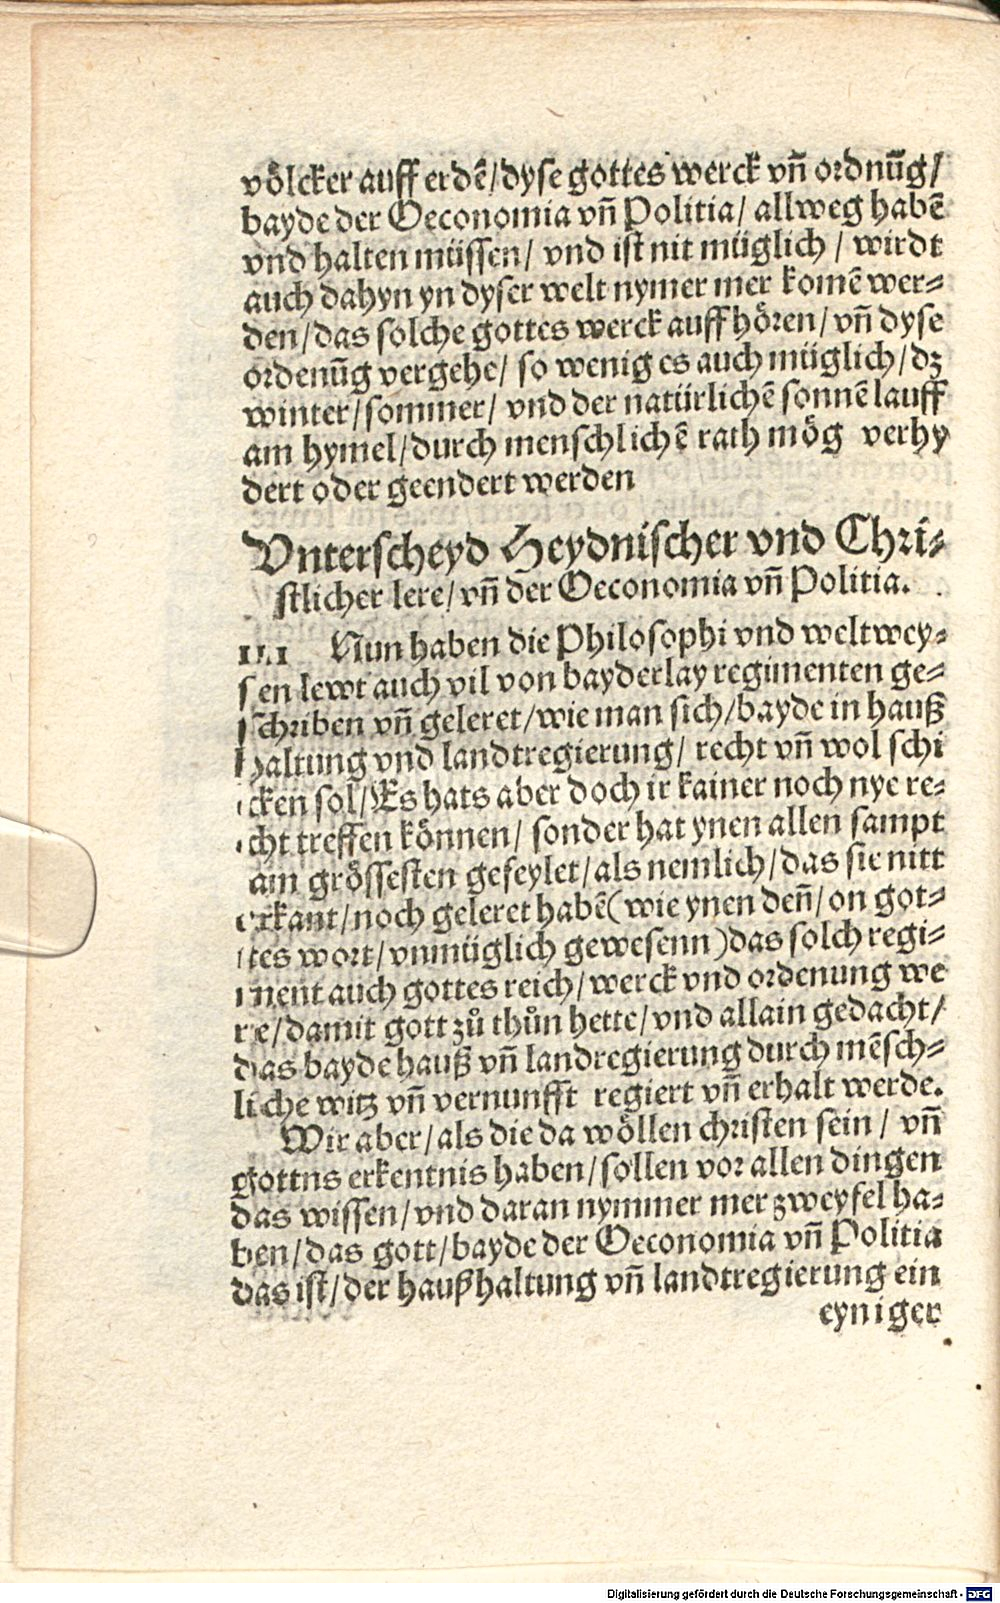 völcker auff erdẽ/dyse gottes werck vñ ordnũg/
bayde der Oeconomia vñ Politia/ allweg habẽ
vnd halten müssen/ vnd ist nit müglich / wirdt
auch dahyn yn dyser welt nymer mer komẽ wer-
den/das solche gottes werck auff hören/ vñ dyse
ordenũg vergehe/ so wenig es auch müglich/dz
winter/sommer/ vnd der natürlichẽ sonnẽ lauff
am hymel/durch menschlichẽ rath mög verhy
dert oder geendert werden
Vnterscheyd Heydnischer vnd Chri-
stlicher lere/ vñ der Oeconomia vñ Politia.
Nun haben die Philosophi vnd weltwey-
sen lewt auch vil von bayderlay regimenten ge-
schriben vñ geleret/wie man sich/bayde in hauß
haltung vnd landtregierung/ recht vñ wol schi
cken sol/Es hats aber doch ir kainer noch nye re-
cht treffen können/ sonder hat ynen allen sampt
am grössesten gefeylet/als nemlich/das sie nitt
erkant/noch geleret habẽ(wie ynen deñ/on got-
tes wort/vnmüglich gewesenn)das solch regi-
ment auch gottes reich/werck vnd ordenung we
re/damit gott zů thůn hette/vnd allain gedacht/
das bayde hauß vñ landregierung durch mẽsch-
liche witz vñ vernunfft regiert vñ erhalt werde.
Wir aber/als die da wöllen christen sein/ vñ
gottns erkentnis haben/sollen vor allen dingen
das wissen/vnd daran nymmer mer zweyfel ha-
ben/das gott/bayde der Oeconomia vñ Politia
das ist/der haußhaltung vñ landtregierung ein
eyniger
Digitalisierung gefördert durch die Deutsche Forschungsgemeinschaft - DFG